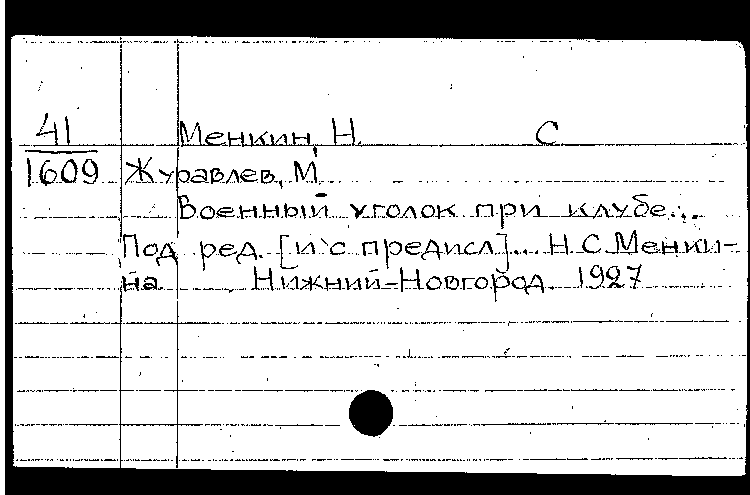 41 Менкин, Н. С
1609 Журавлев, М.
Военный уголок при клубе...
Под ред. [и с предисл]... Н.С.Менки-
на Нижний-Новгород. 1927